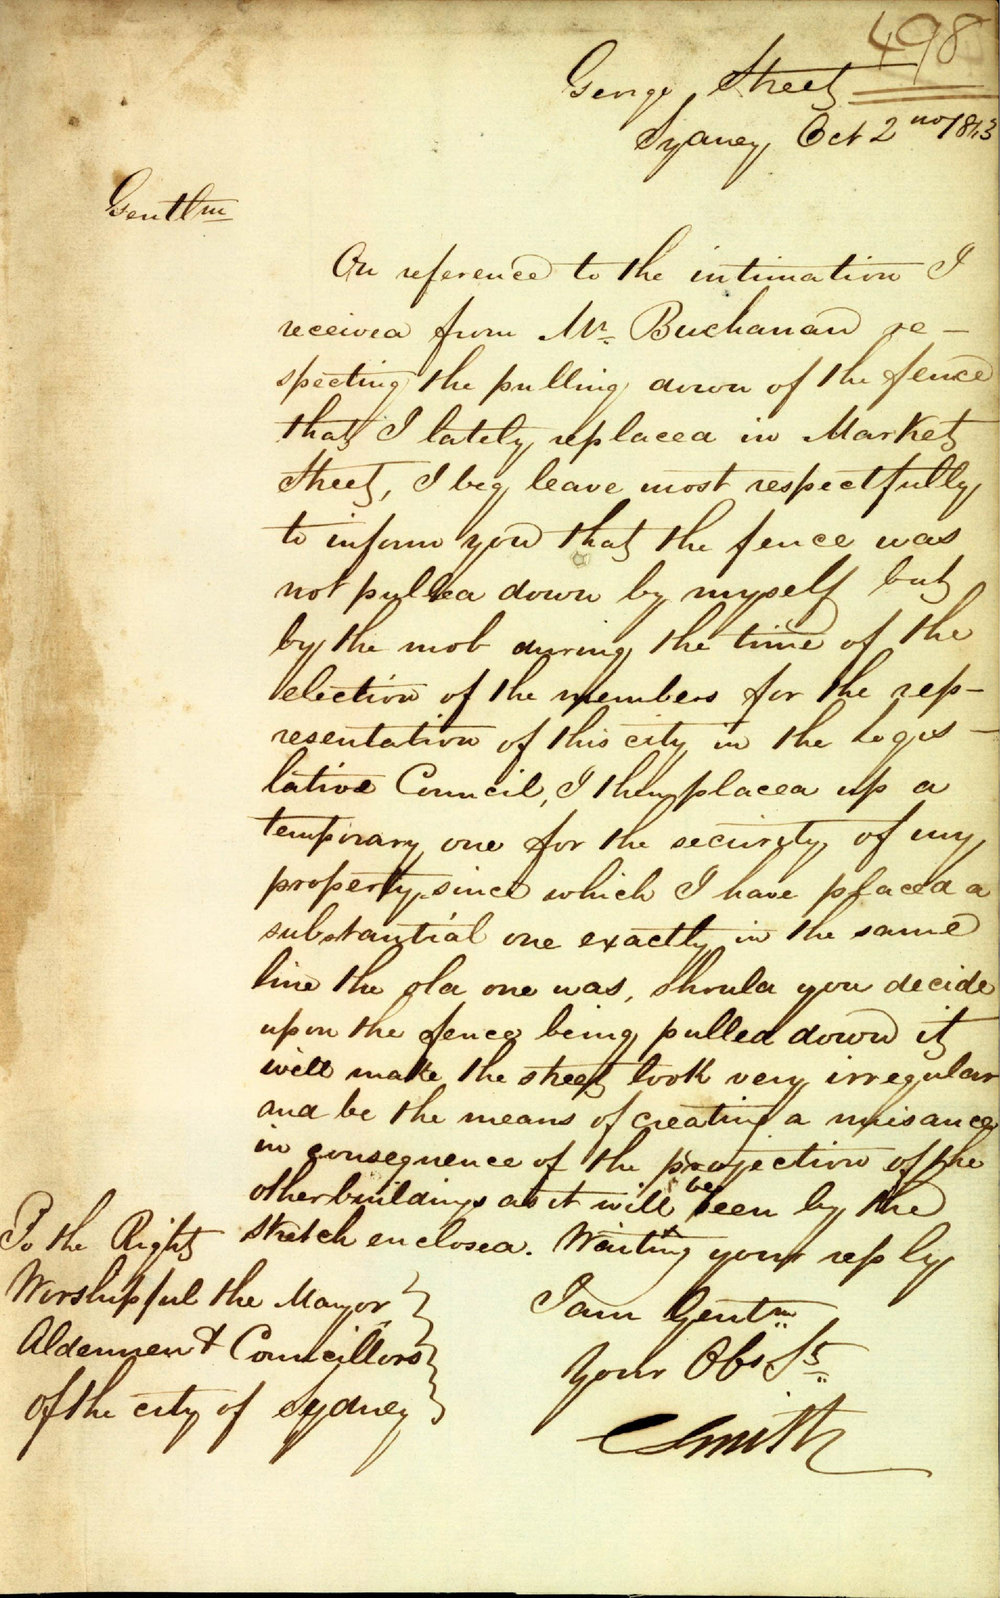 498
George Street
Sydney Oct 2nd 1843
Gentlm
On reference to the intimation I
received from Mr. Buchanan re-
specting the pulling down of the fence
that I lately replaced in Market
Street, I beg leave most respectfully
to inform you that the fence was
not pulled down by myself but
by the mob during the time of the
election of the members for the rep-
resentation of this city in the Legis-
lative Council, I then placed up a
temporary one for the security of my
property, since which I have placed a
substantial one exactly in the same
line the old one was, Should you decide
upon the fence being pulled down it
will make the street look very irregular
and be the means of creating a nuisance
in consequence of the projection of the
other buildings as it will be seen by the
sketch enclosed. Waiting your reply
I am Gentm
Your Obs St
C Smith
To the Right
Worshipful the Mayor
Aldermen & Councillors
of the city of Sydney